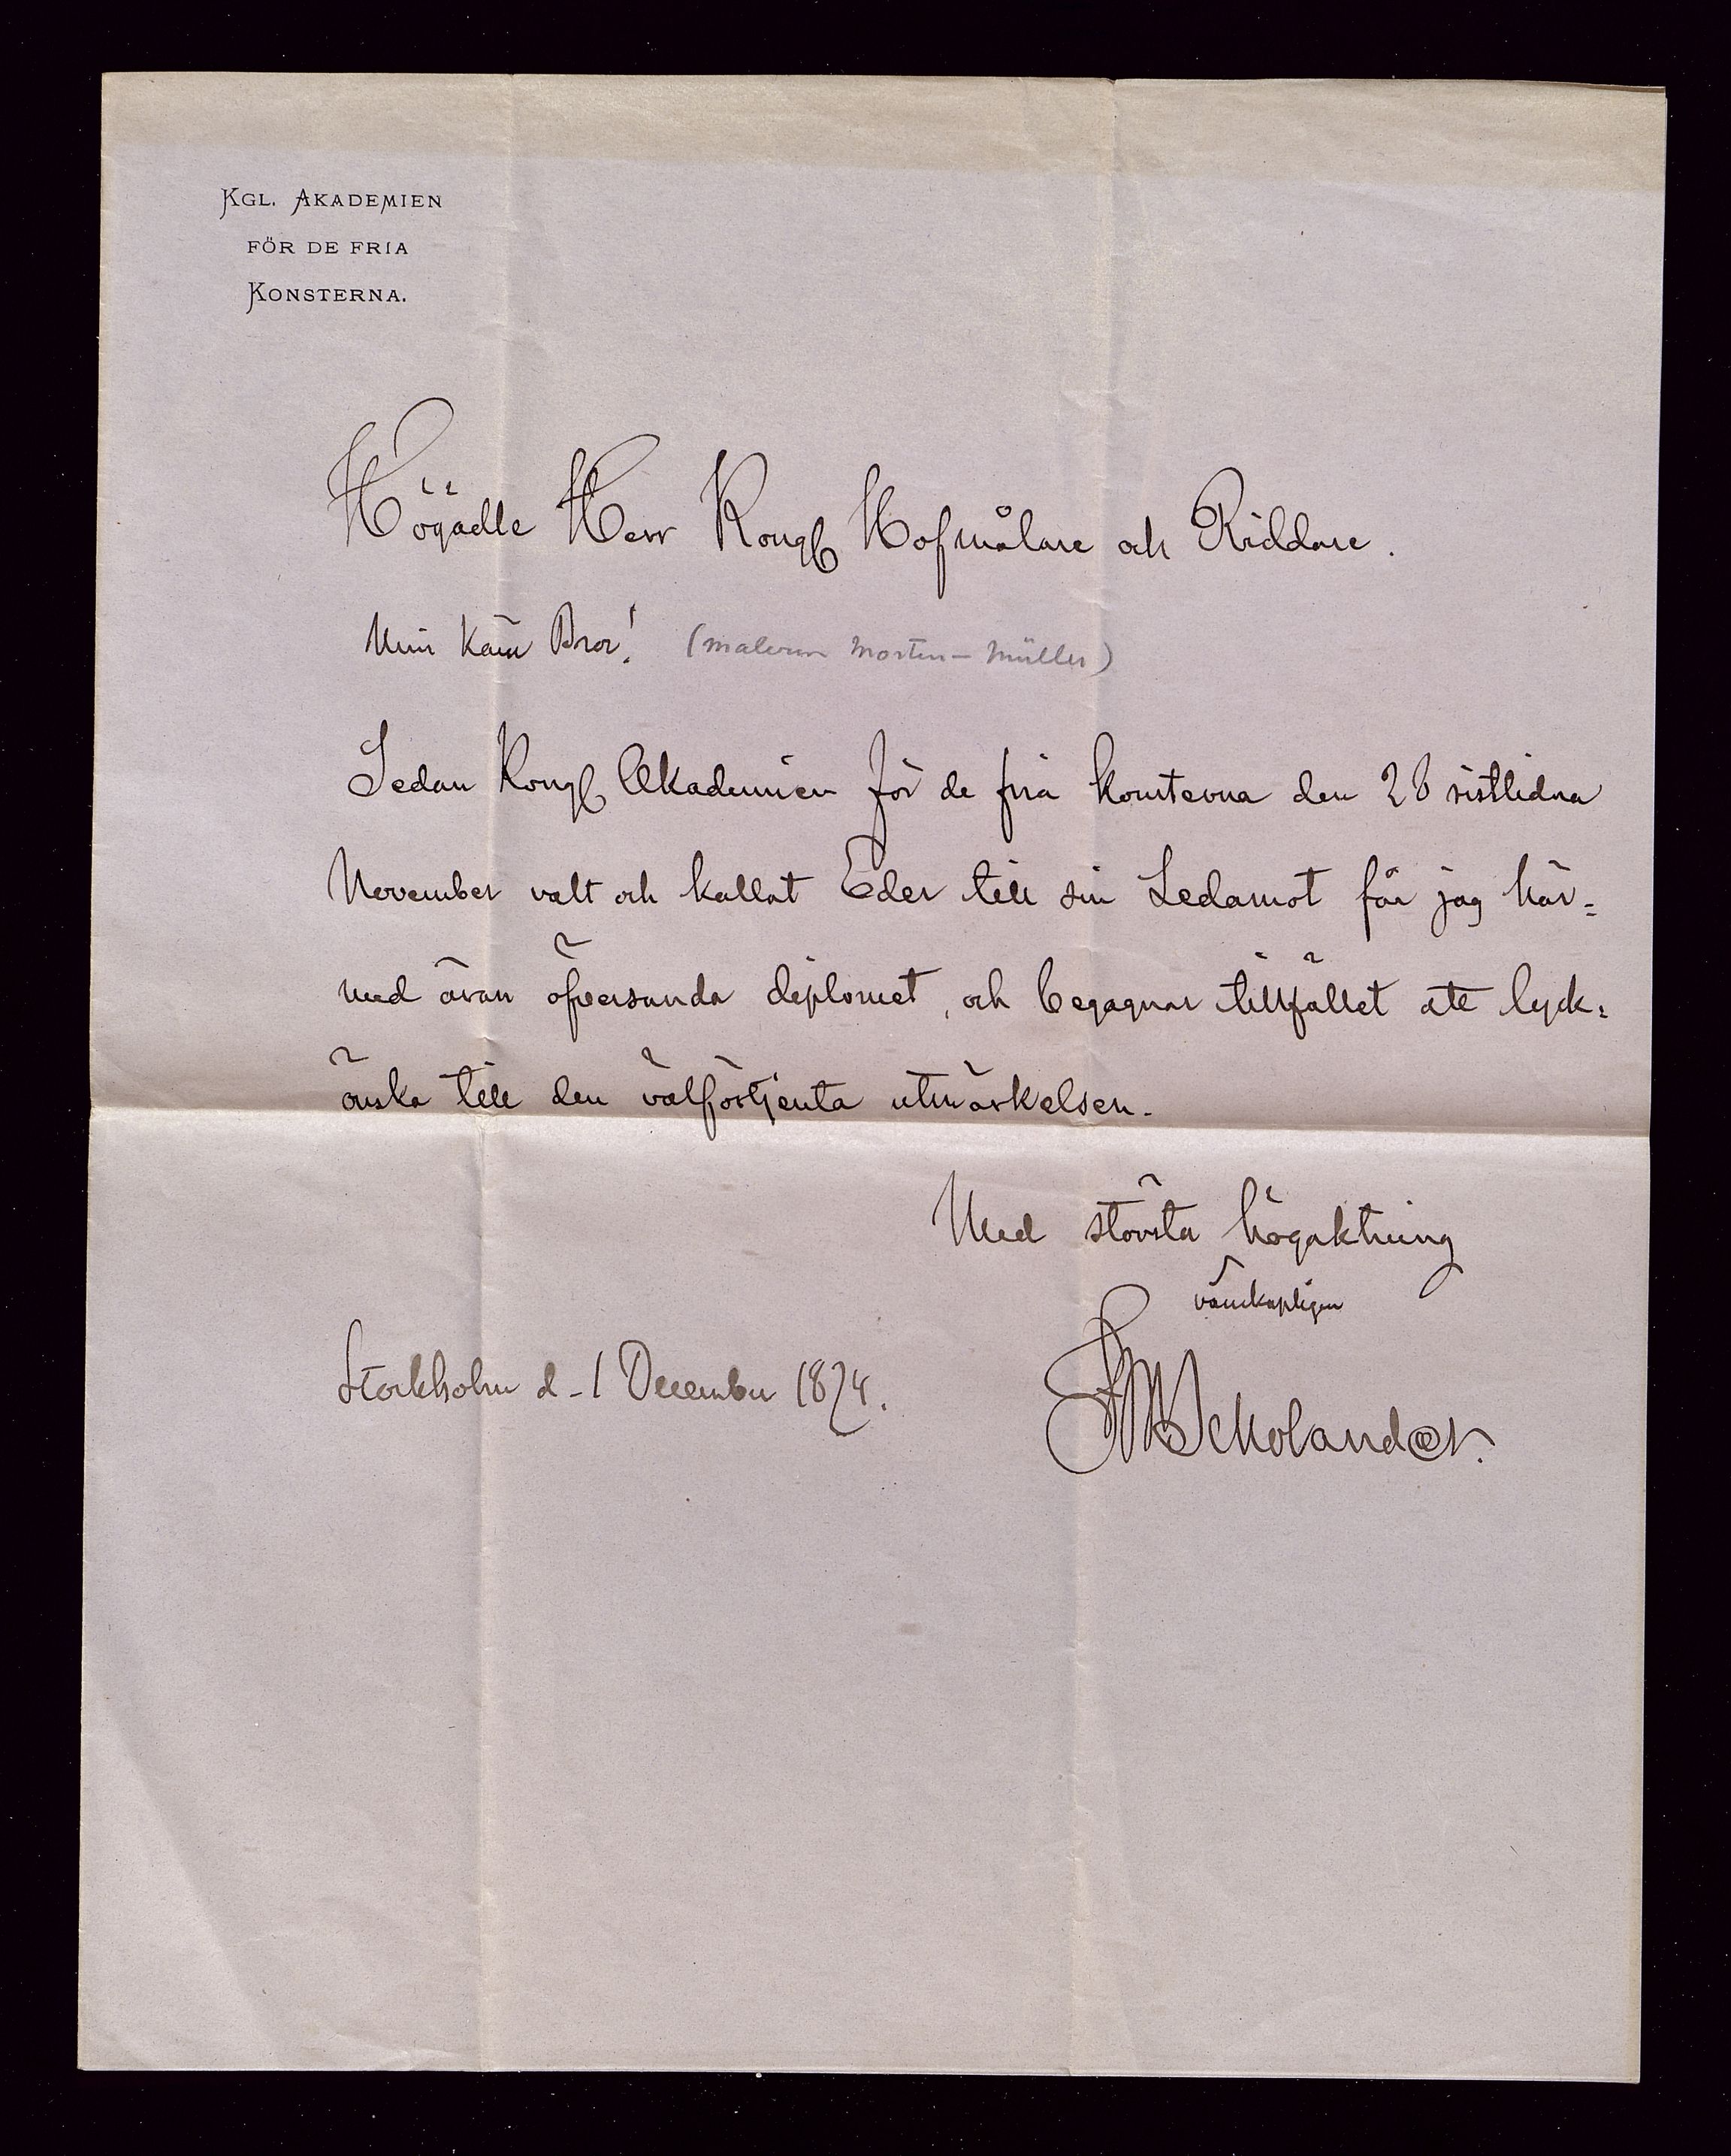 KGL. AKADEMIEN
FÖR DE FRIA
KONSTERNA.
Högädle Herr Kongl Hofmålare och Riddare.
Min kära Bror! (maleren Morten-Müller)
Sedan Kongl Akademien för de fria konsterna den 28 sistlidna
November valt och kallat Eder till sin Ledamot får jag här=
med äran öfversända diplomet, och begagnar tillfället att lyck=
önska till den välförtjenta utmärkelsen.
Med största högaktning
vänskapligen
Stockholm d. 1 December 1874.
FWScholander.